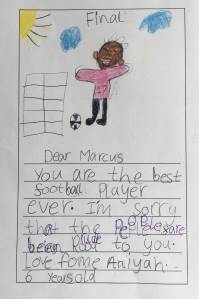 Final
Dear Marcus
You are the best
football Player
ever. Im Sorry
that the People are
been Rude to you.
Love fome Aniyah..
6 years old